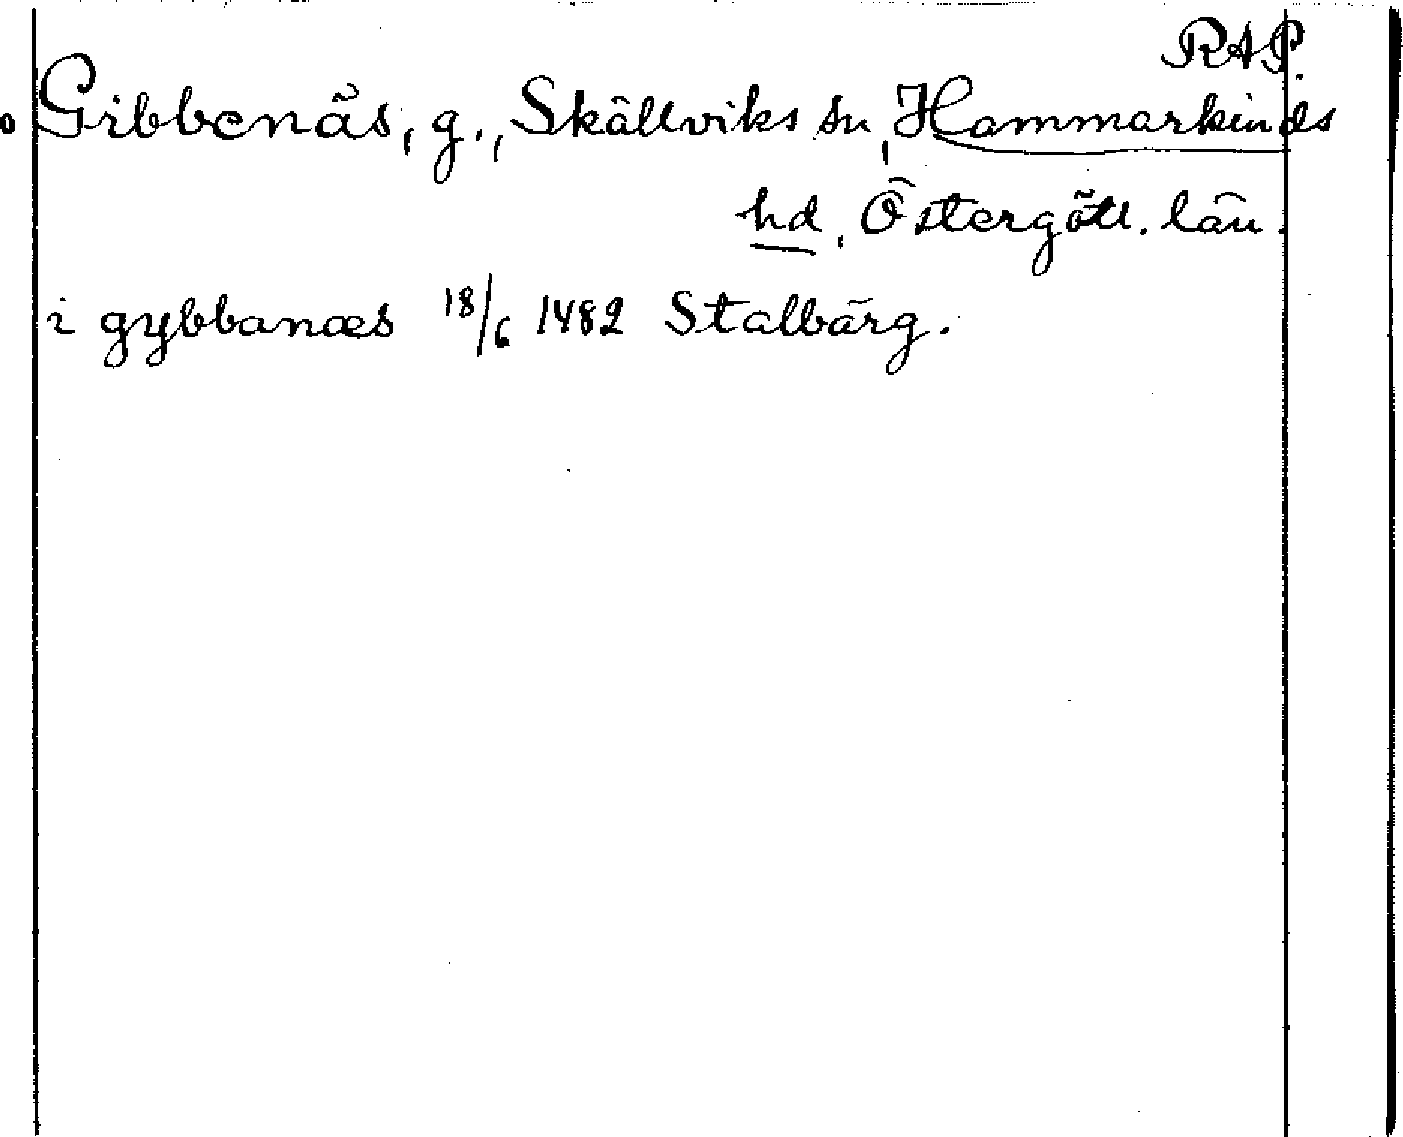 RAP.
Gibbenäs, g., Skällviks sn, Hammarkinds
hd, Östergötl. län.
i gybbanæs 18/6 1482 Stalbärg.